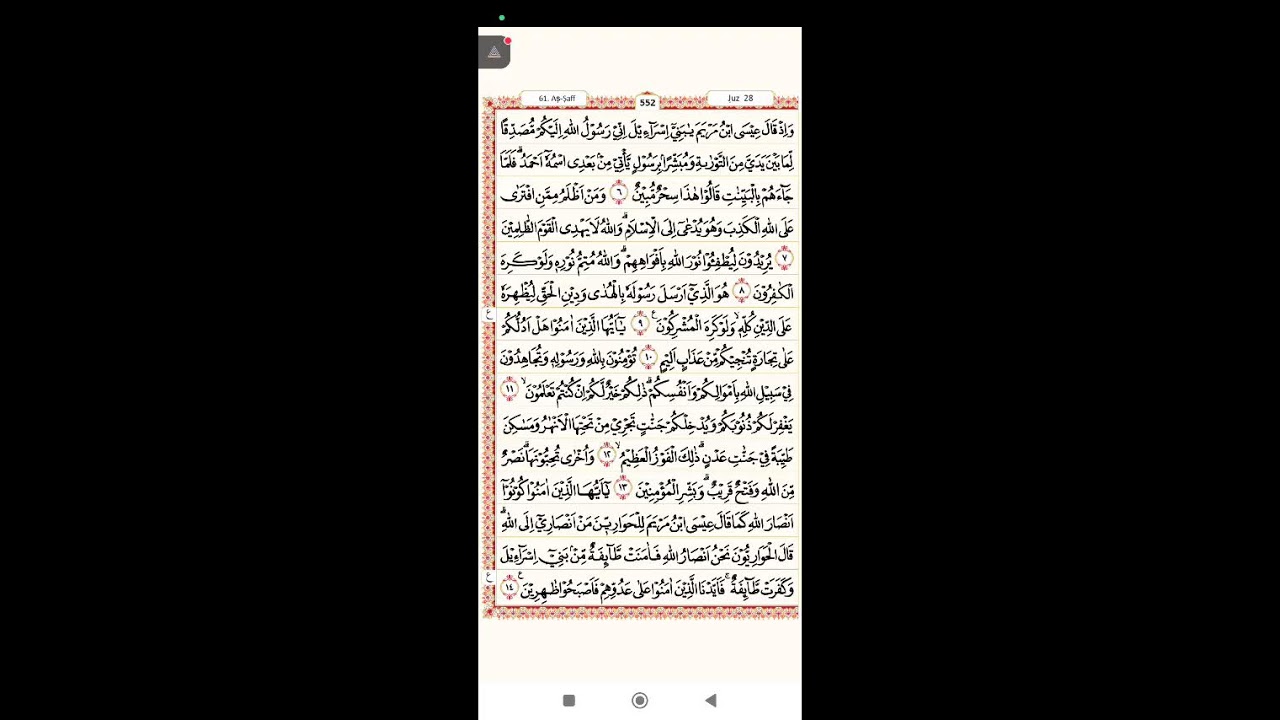 61. Aṣ-Ṣaff
552
Juz 28
وَاِذْ قَالَ عِيْسَى ابْنُ مَرْيَمَ يٰبَنِيْٓ اِسْرَاۤءِيْلَ اِنِّيْ رَسُوْلُ اللّٰهِ اِلَيْكُمْ مُّصَدِّقًا
لِّمَا بَيْنَ يَدَيَّ مِنَ التَّوْرٰىةِ وَمُبَشِّرًاۢ بِرَسُوْلٍ يَّأْتِيْ مِنْۢ بَعْدِى اسْمُهٗٓ اَحْمَدُۗ فَلَمَّا
جَاۤءَهُمْ بِالْبَيِّنٰتِ قَالُوْا هٰذَا سِحْرٌ مُّبِيْنٌ ٦ وَمَنْ اَظْلَمُ مِمَّنِ افْتَرٰى
عَلَى اللّٰهِ الْكَذِبَ وَهُوَ يُدْعٰىٓ اِلَى الْاِسْلَامِۗ وَاللّٰهُ لَا يَهْدِى الْقَوْمَ الظّٰلِمِيْنَ
٧ يُرِيْدُوْنَ لِيُطْفِـُٔوْا نُوْرَ اللّٰهِ بِاَفْوَاهِهِمْۗ وَاللّٰهُ مُتِمُّ نُوْرِهٖ وَلَوْ كَرِهَ
الْكٰفِرُوْنَ ٨ هُوَ الَّذِيْٓ اَرْسَلَ رَسُوْلَهٗ بِالْهُدٰى وَدِيْنِ الْحَقِّ لِيُظْهِرَهٗ
عَلَى الدِّيْنِ كُلِّهٖۙ وَلَوْ كَرِهَ الْمُشْرِكُوْنَ ࣖ ٩ يٰٓاَيُّهَا الَّذِيْنَ اٰمَنُوْا هَلْ اَدُلُّكُمْ
عَلٰى تِجَارَةٍ تُنْجِيْكُمْ مِّنْ عَذَابٍ اَلِيْمٍ ١٠ تُؤْمِنُوْنَ بِاللّٰهِ وَرَسُوْلِهٖ وَتُجَاهِدُوْنَ
فِيْ سَبِيْلِ اللّٰهِ بِاَمْوَالِكُمْ وَاَنْفُسِكُمْۗ ذٰلِكُمْ خَيْرٌ لَّكُمْ اِنْ كُنْتُمْ تَعْلَمُوْنَۙ ١١
يَغْفِرْ لَكُمْ ذُنُوْبَكُمْ وَيُدْخِلْكُمْ جَنّٰتٍ تَجْرِيْ مِنْ تَحْتِهَا الْاَنْهٰرُ وَمَسٰكِنَ
طَيِّبَةً فِيْ جَنّٰتِ عَدْنٍۗ ذٰلِكَ الْفَوْزُ الْعَظِيْمُۙ ١٢ وَاُخْرٰى تُحِبُّوْنَهَاۗ نَصْرٌ
مِّنَ اللّٰهِ وَفَتْحٌ قَرِيْبٌۗ وَبَشِّرِ الْمُؤْمِنِيْنَ ١٣ يٰٓاَيُّهَا الَّذِيْنَ اٰمَنُوْا كُوْنُوْٓا
اَنْصَارَ اللّٰهِ كَمَا قَالَ عِيْسَى ابْنُ مَرْيَمَ لِلْحَوَارِيّٖنَ مَنْ اَنْصَارِيْٓ اِلَى اللّٰهِۗ
قَالَ الْحَوَارِيُّوْنَ نَحْنُ اَنْصَارُ اللّٰهِ فَاٰمَنَتْ طَّاۤىِٕفَةٌ مِّنْۢ بَنِيْٓ اِسْرَاۤءِيْلَ
وَكَفَرَتْ طَّاۤىِٕفَةٌۚ فَاَيَّدْنَا الَّذِيْنَ اٰمَنُوْا عَلٰى عَدُوِّهِمْ فَاَصْبَحُوْا ظٰهِرِيْنَ ࣖ ١٤
ع
ع